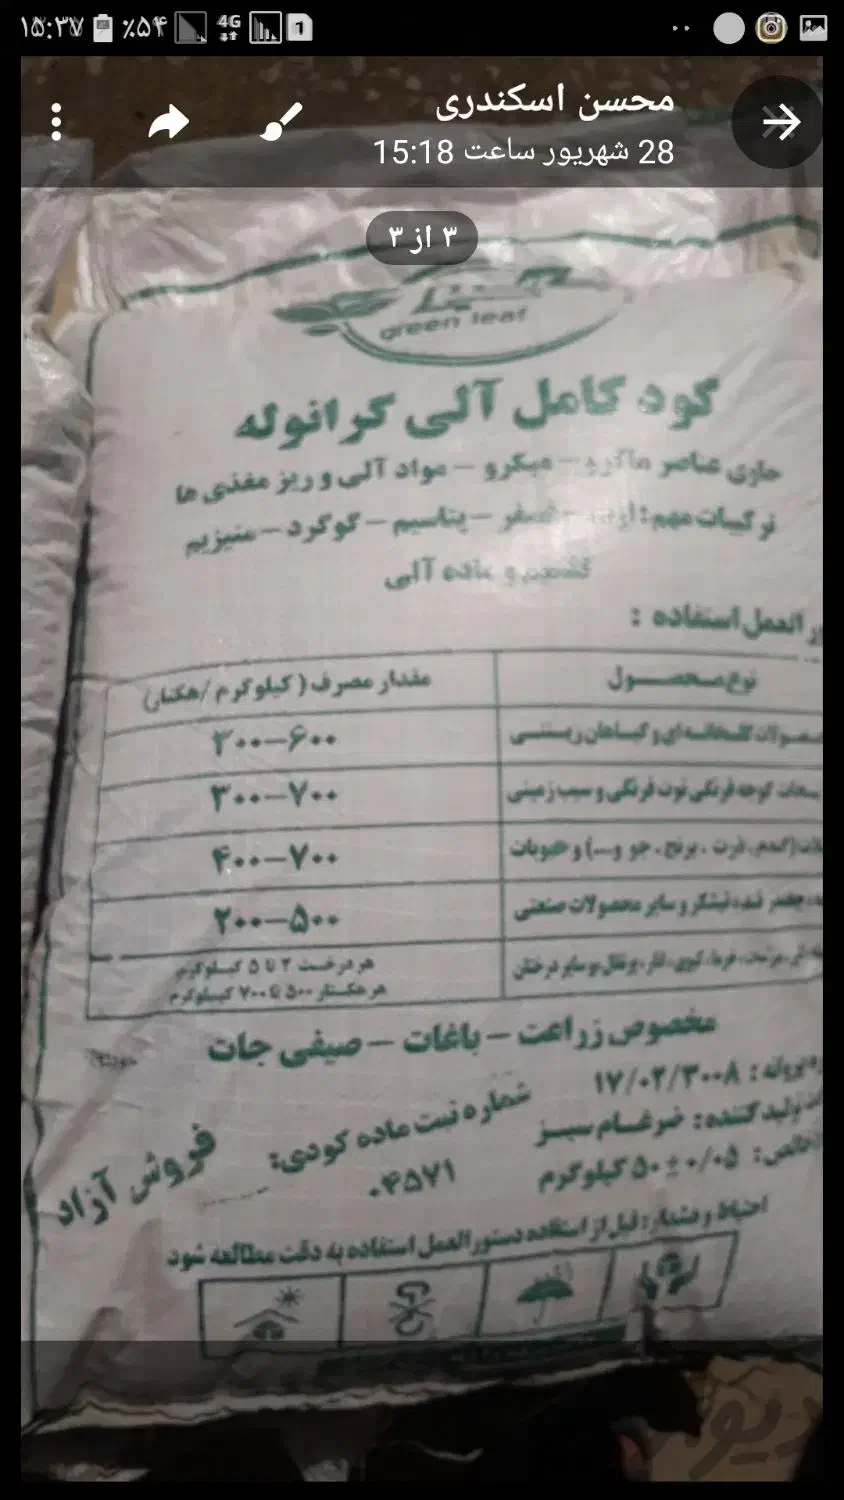 ۱۵:۳۷ ٪۵۴ 4G 1
محسن اسکندری
28 شهریور ساعت 15:18
۳ از ۳
green leaf
کود کامل آلی گرانوله
حاوی عناصر ماکرو – میکرو – مواد آلی و ریز مغذی ها
ترکیبات مهم: فسفر – پتاسیم – گوگرد – منیزیم
و ماده آلی
العمل استفاده :
نوع محصول
مقدار مصرف (کیلوگرم /هکتار)
گلخانه ای و گیاهان زینتی
۳۰۰–۶۰۰
گوجه فرنگی توت فرنگی و سیب زمینی
۳۰۰–۷۰۰
(گندم، ذرت، برنج، جو و...) و حبوبات
۴۰۰–۷۰۰
چغندر قند، نیشکر و سایر محصولات صنعتی
۲۰۰–۵۰۰
خرما، کیوی، انار، پرتقال و سایر درختان
هر درخت ۲ تا ۵ کیلوگرم
هر هکتار ۵۰۰ تا ۷۰۰ کیلوگرم
مخصوص زراعت – باغات – صیفی جات
پروانه : ۱۷/۰۲/۳۰۰۸
تولید کننده: ضرغام سبز
خالص: ۵۰±۰/۰۵ کیلوگرم
شماره ثبت ماده کودی:
۰۴۵۷۱
فروش آزاد
احتیاط و هشدار: قبل از استفاده دستورالعمل استفاده به دقت مطالعه شود
دیوار